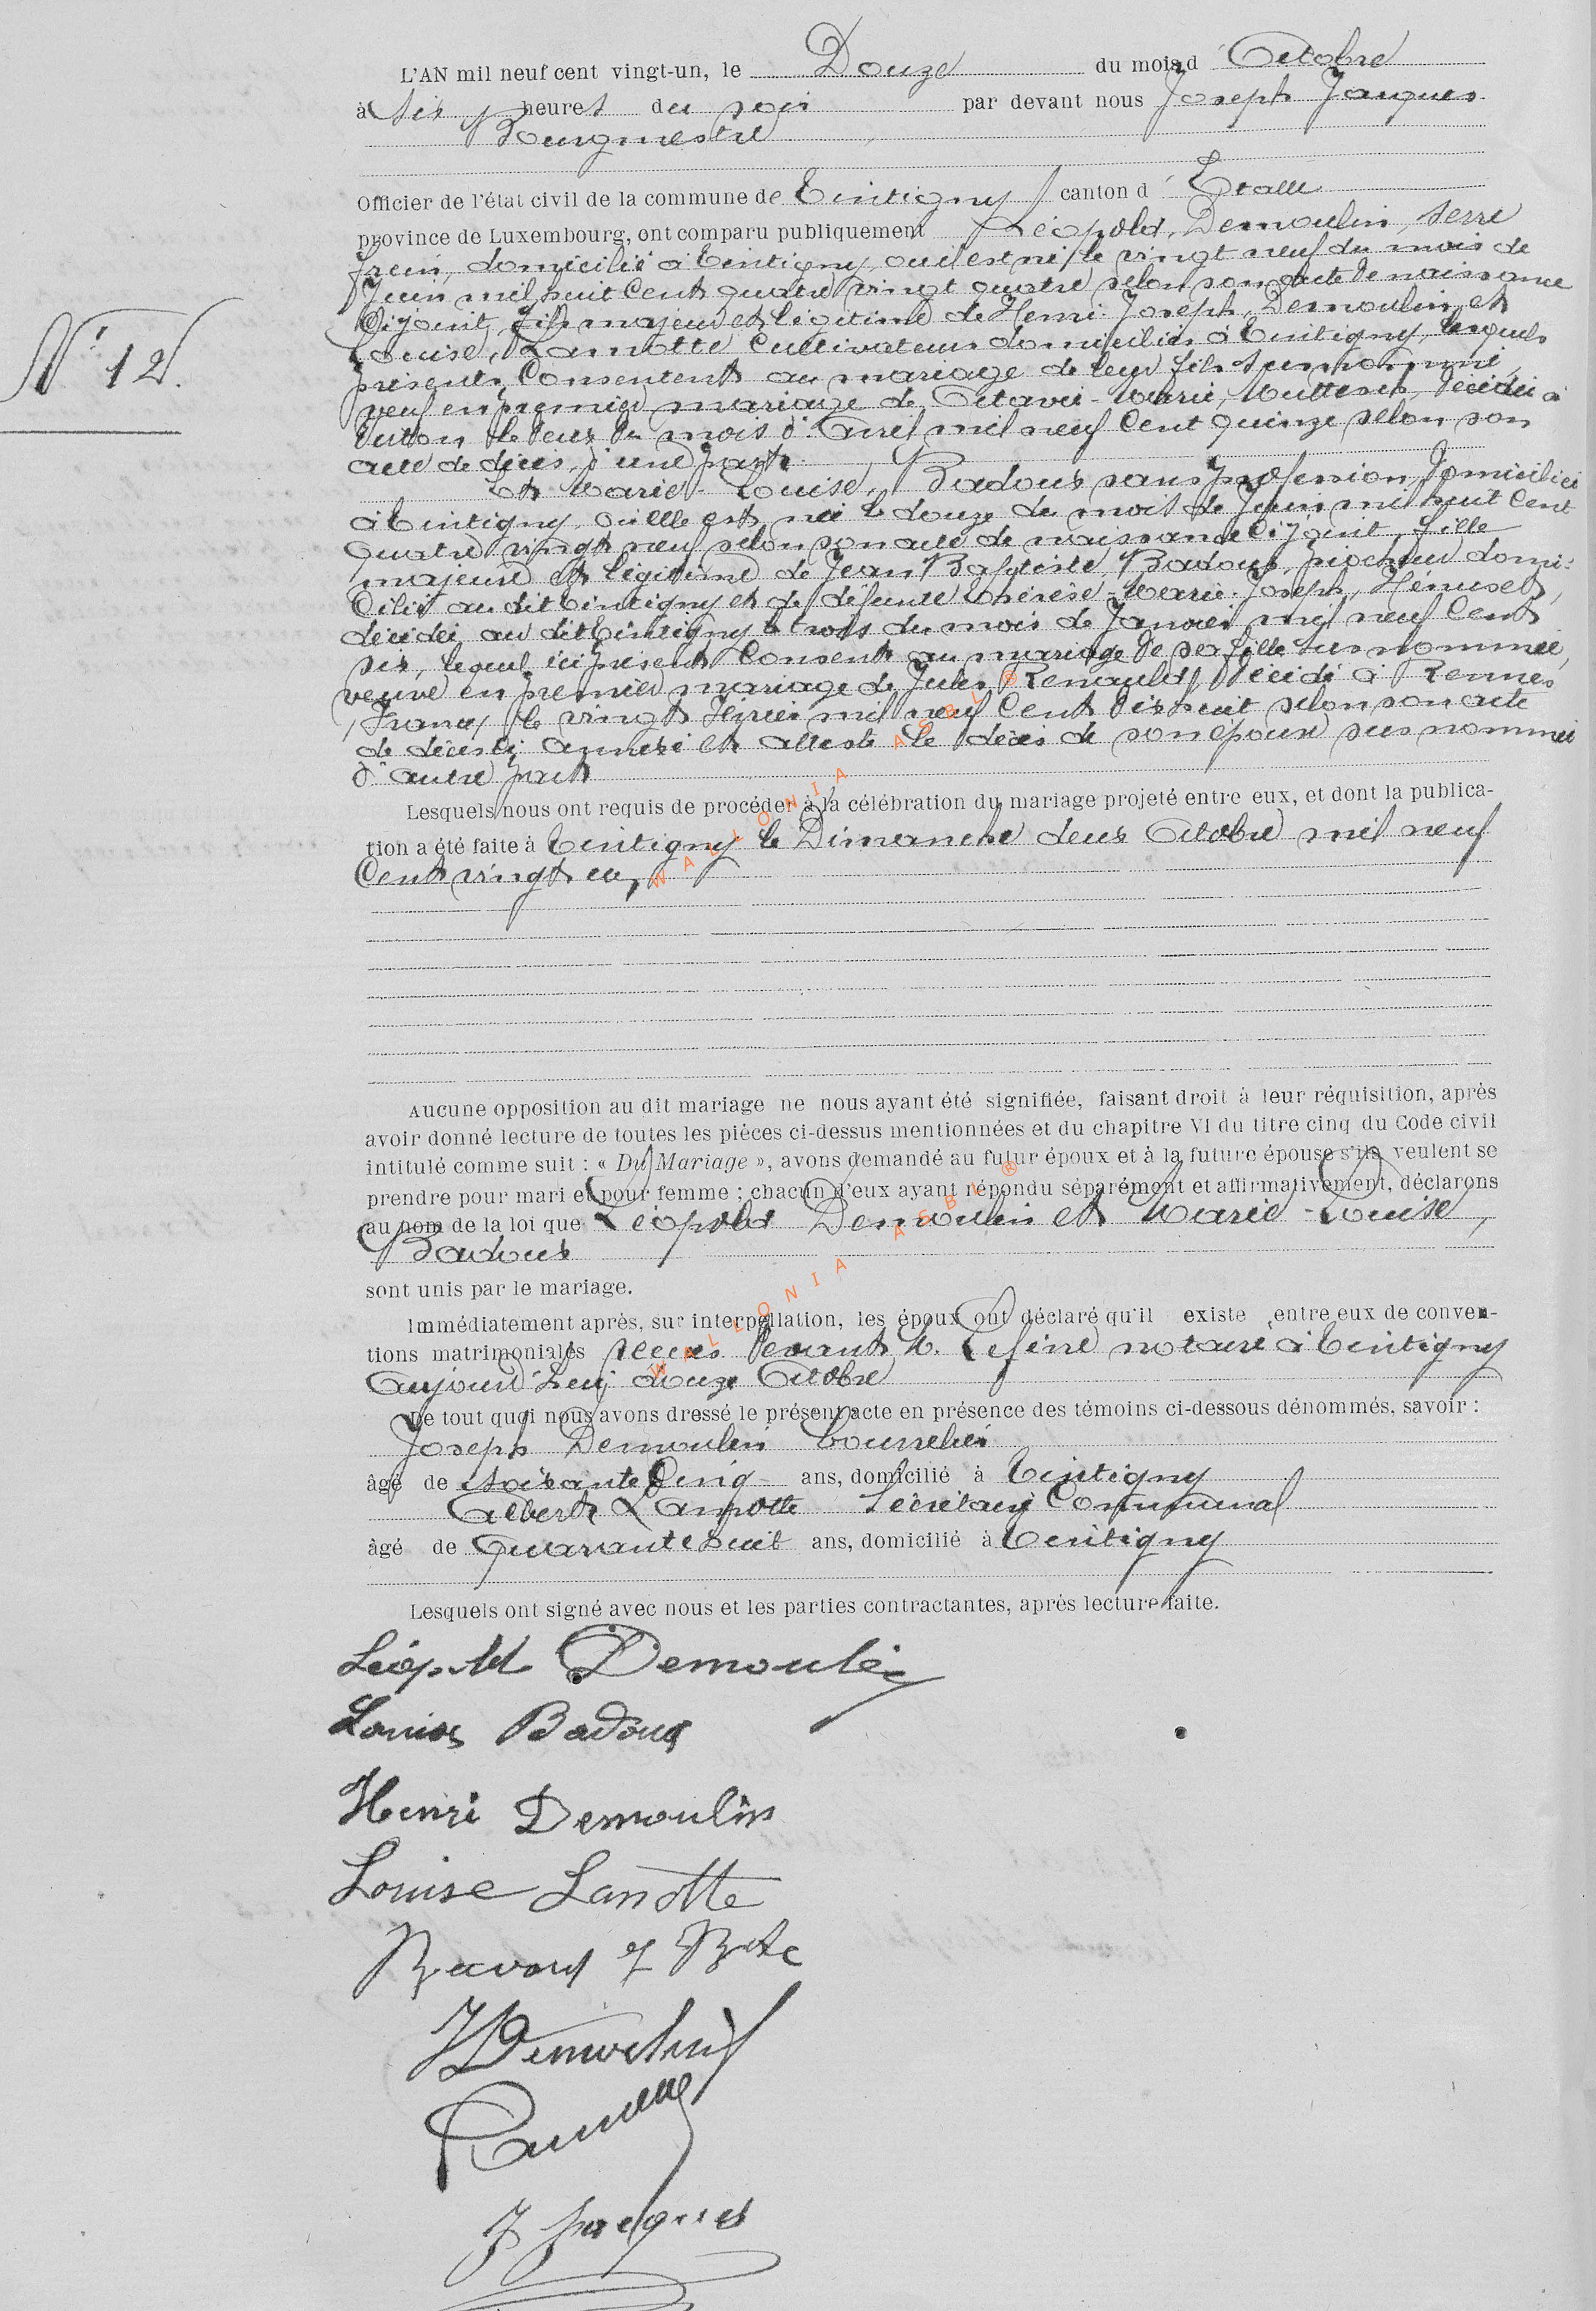 L'AN mil neuf cent vingt-un, le Douze du mois d'Octobre
à six heures du soir par devant nous Joseph Jacques
Bourgmestre
Officier de l'état civil de la commune de Tintigny canton d'Etalle
province de Luxembourg, ont comparu publiquement Léopold, Demoulin, serre
frein, domicilié à Tintigny, où il est né le vingt neuf du mois de
Juin mil huit Cent quatre vingt quatre selon son acte de naissance
Ci joint, fils majeur et légitime de Henri-Joseph, Demoulin et
Louise, Lamotte Cultivateurs domiciliés à Tintigny, lesquels
présents, Consentent au mariage de leur fils susnommé,
veuf en premier mariage de Octavie-Marie, décédée à
le deux du mois d'Avril mil neuf Cent quinze selon son
acte de décès, d'une part
Et Marie-Louise, Badoux sans profession, domiciliée
à Tintigny, où elle est née le douze du mois de Juin mil huit Cent
quatre vingt neuf selon son acte de naissance Ci joint, fille
majeure et légitime de Jean Baptiste, Badoux, piocheur domi-
Cilié au dit Tintigny et de défunte Thérèse-Marie-Joseph, Hénuset,
décédée au dit Tintigny le trois du mois de Janvier mil neuf Cent
six, lequel ici présent Consent au mariage de sa fille sus nommée,
veuve en premier mariage de Jules, Renauld, décédé à Rennes
/France/ le vingt Février mil neuf Cent dix huit selon son acte
de décès Ci annexé et atteste le décès de son époux sus nommé
d'autre part
Lesquels nous ont requis de procéder à la célébration du mariage projeté entre eux, et dont la publica-
tion a été faite à Tintigny le Dimanche deux Octobre mil neuf
Cent vingt un,
Aucune opposition au dit mariage ne nous ayant été signifiée, faisant droit à leur réquisition, après
avoir donné lecture de toutes les pièces ci-dessus mentionnées et du chapitre VI du titre cinq du Code civil
intitulé comme suit : « Du Mariage », avons demandé au futur époux et à la future épouse s'ils veulent se
prendre pour mari et pour femme ; chacun d'eux ayant répondu séparément et affirmativement, déclarons
au nom de la loi que Léopold Demoulin et Marie-Louise,
Badoux
sont unis par le mariage.
Immédiatement après, sur interpellation, les époux ont déclaré qu'il existe entre eux de conven-
tions matrimoniales reçues devant M. Lefèvre notaire à Tintigny
aujourd'hui douze Octobre
De tout quoi nous avons dressé le présent acte en présence des témoins ci-dessous dénommés, savoir :
Joseph Demoulin bourrelier
âgé de soixante Cinq ans, domicilié à Tintigny
Albert Lamotte Secrétaire Communal
âgé de Quarante huit ans, domicilié à Tintigny
Lesquels ont signé avec nous et les parties contractantes, après lecture faite.
Léopold Demoulin
Louise Badoux
Henri Demoulin
Louise Lamotte
Badoux J Bte
J Demoulin
J Jacques
N° 12.
WALLONIA ASBL ®
WALLONIA ASBL ®